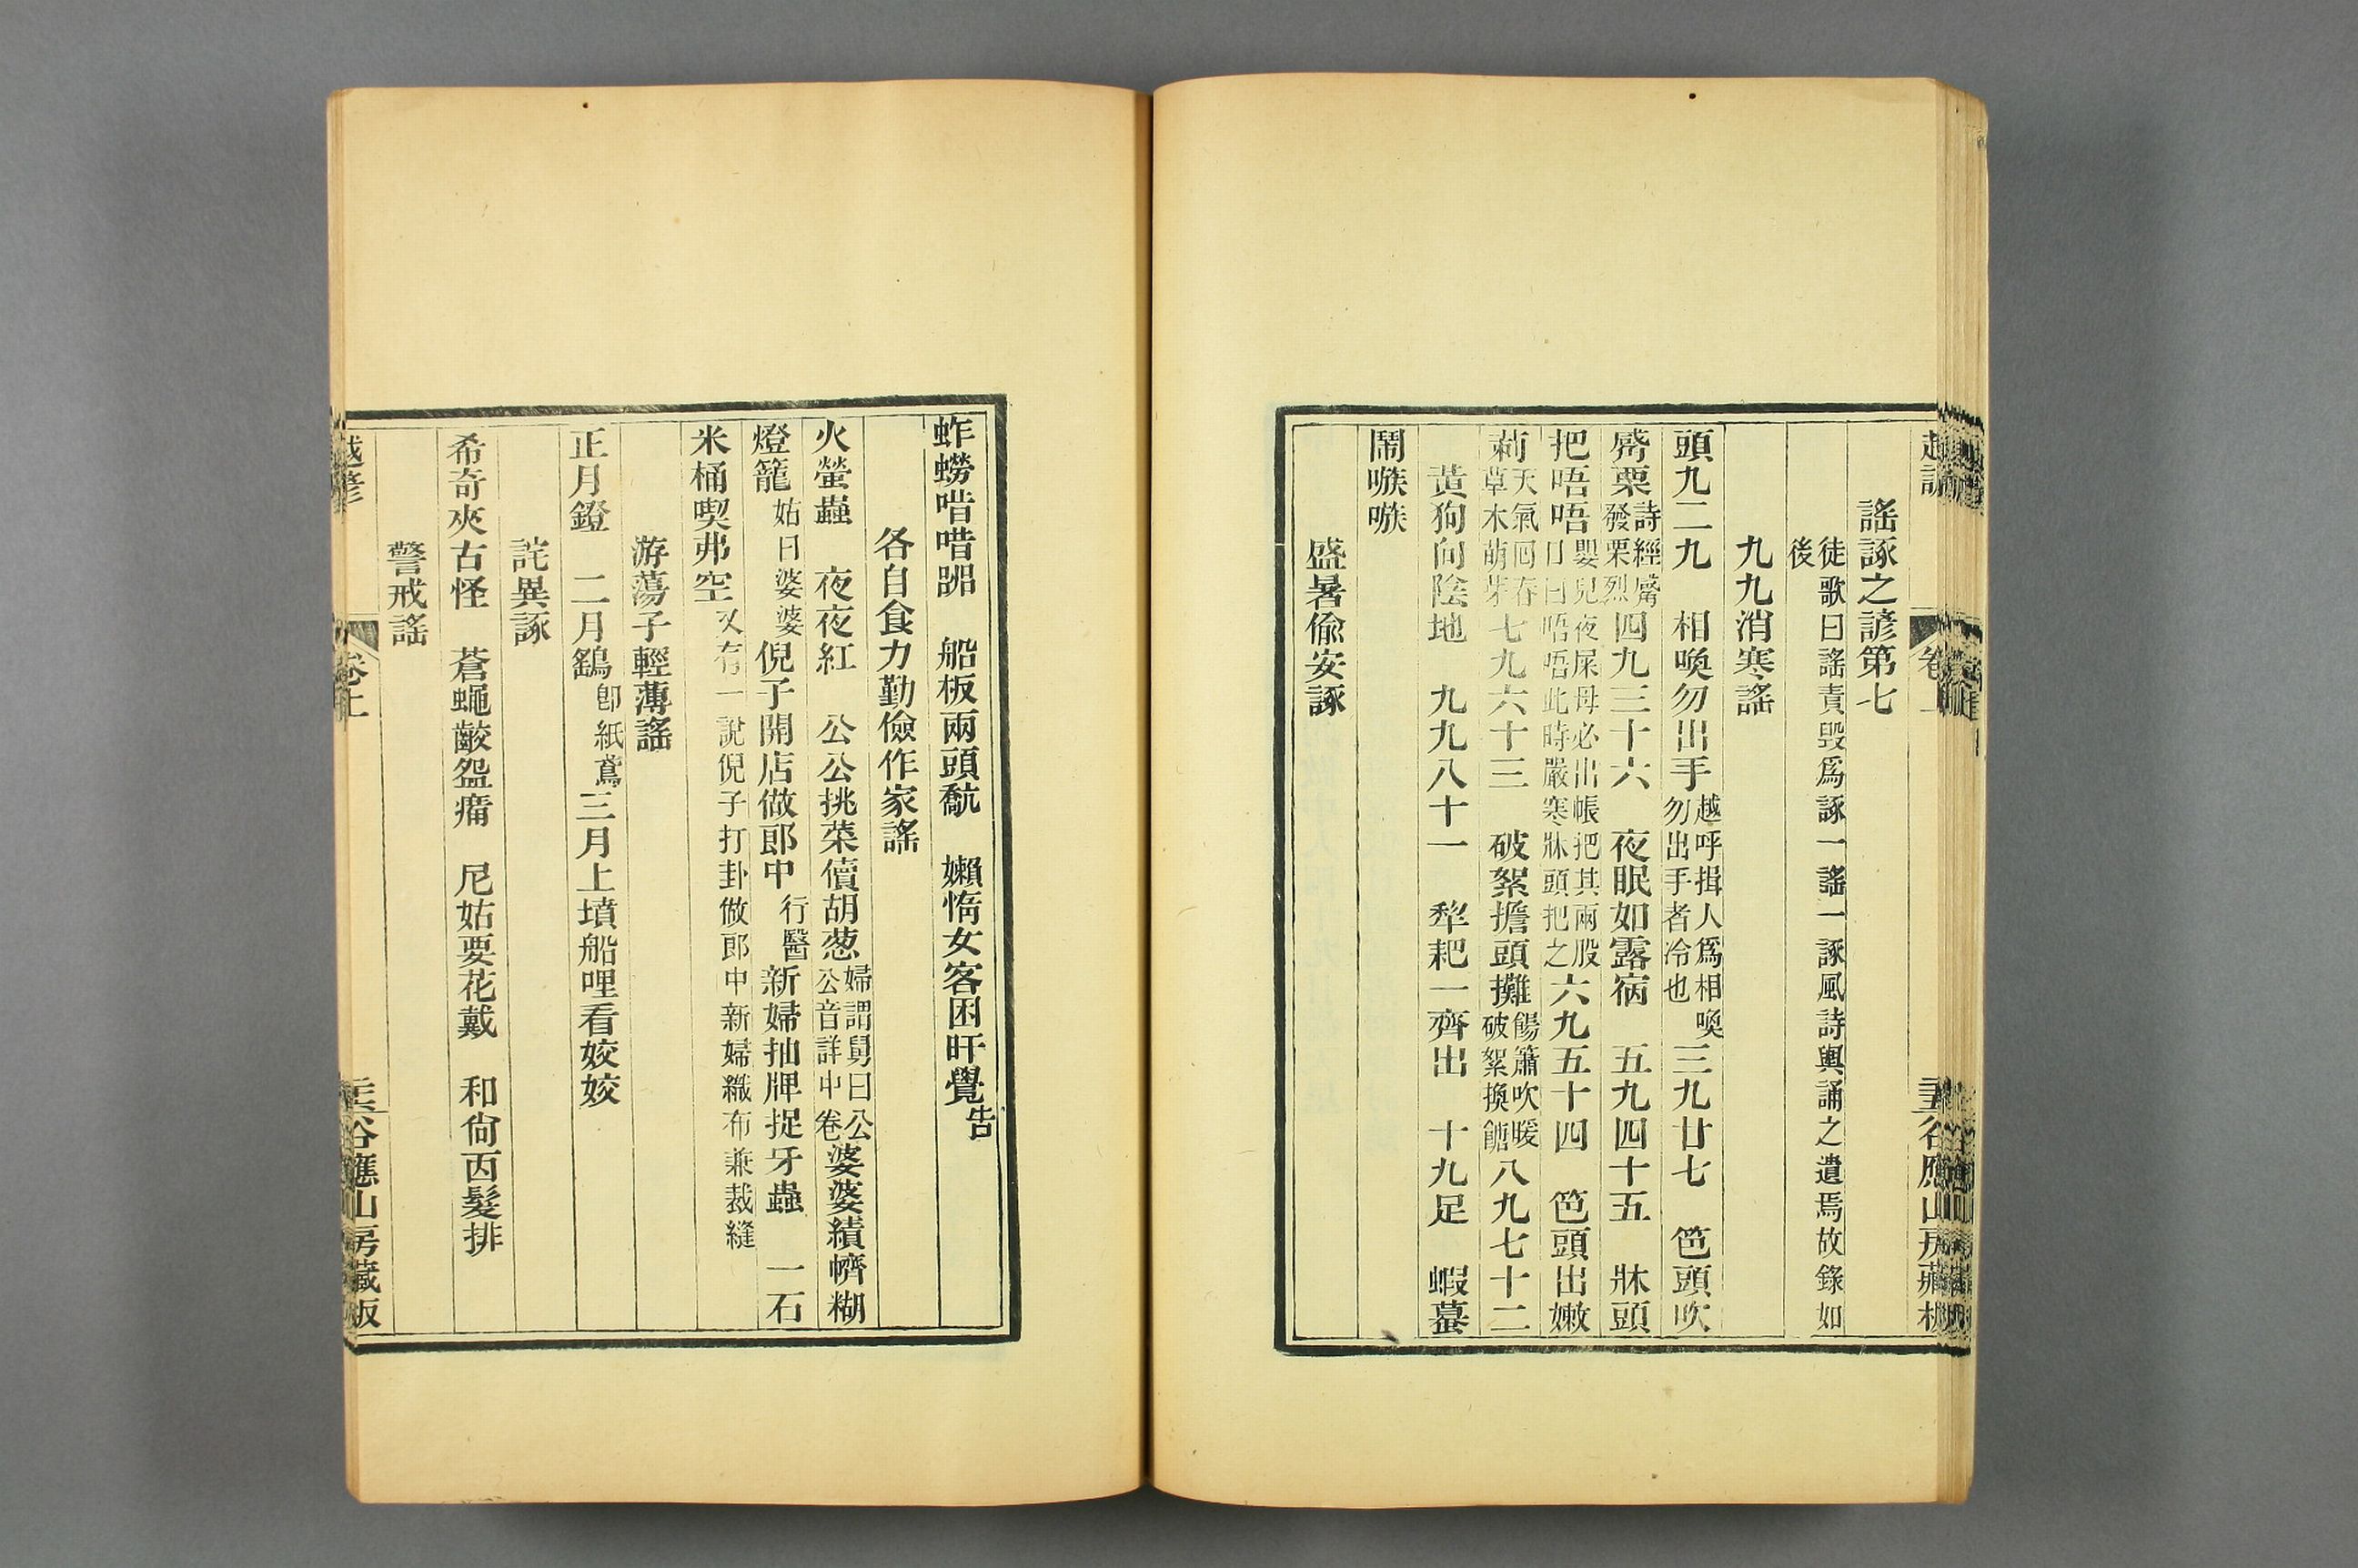 越諺 卷上 谷應山房藏板
謠諑之諺第七
徒歌曰謠責毀爲諑一謠一諑風詩輿誦之遺焉故錄如
後
九九消寒謠
頭九二九 相喚勿出手 越呼揖人爲相喚 勿出手者冷也 三九廿七 笆頭吹
觱栗 詩經觱 發栗烈 四九三十六 夜眠如露宿 五九四十五 牀頭
把唔唔 嬰兒夜尿母必出帳把其兩股 口曰唔唔此時嚴寒牀頭把之 六九五十四 笆頭出嫩
莿 天氣回春 草木萌芽 七九六十三 破絮擔頭攤 餳簫吹暖 破絮換餹 八九七十二
黃狗向陰地 九九八十一 犂耙一齊出 十九足 蝦蟇
鬧嗾嗾
盛暑偷安諑
蚱蟧喈喈 船板兩頭 嬾惰女客困旰覺 告
各自食力勤儉作家謠
火螢蟲 夜夜紅 公公挑菜儥胡葱 婦謂舅曰公 公音詳中卷 婆婆績幬糊
燈籠 姑曰婆婆 倪子開店做郎中 行醫 新婦抽牌捉牙蟲 一石
米桶喫弗空 又有一說倪子打卦做郎中新婦織布兼裁縫
游蕩子輕薄謠
正月鐙 二月鷂 卽紙鳶 三月上墳船哩看姣姣
詫異諑
希奇夾古怪 蒼蠅齩盌 尼姑要花戴 和尙丙髮排
警戒謠
越諺 卷上 谷應山房藏板